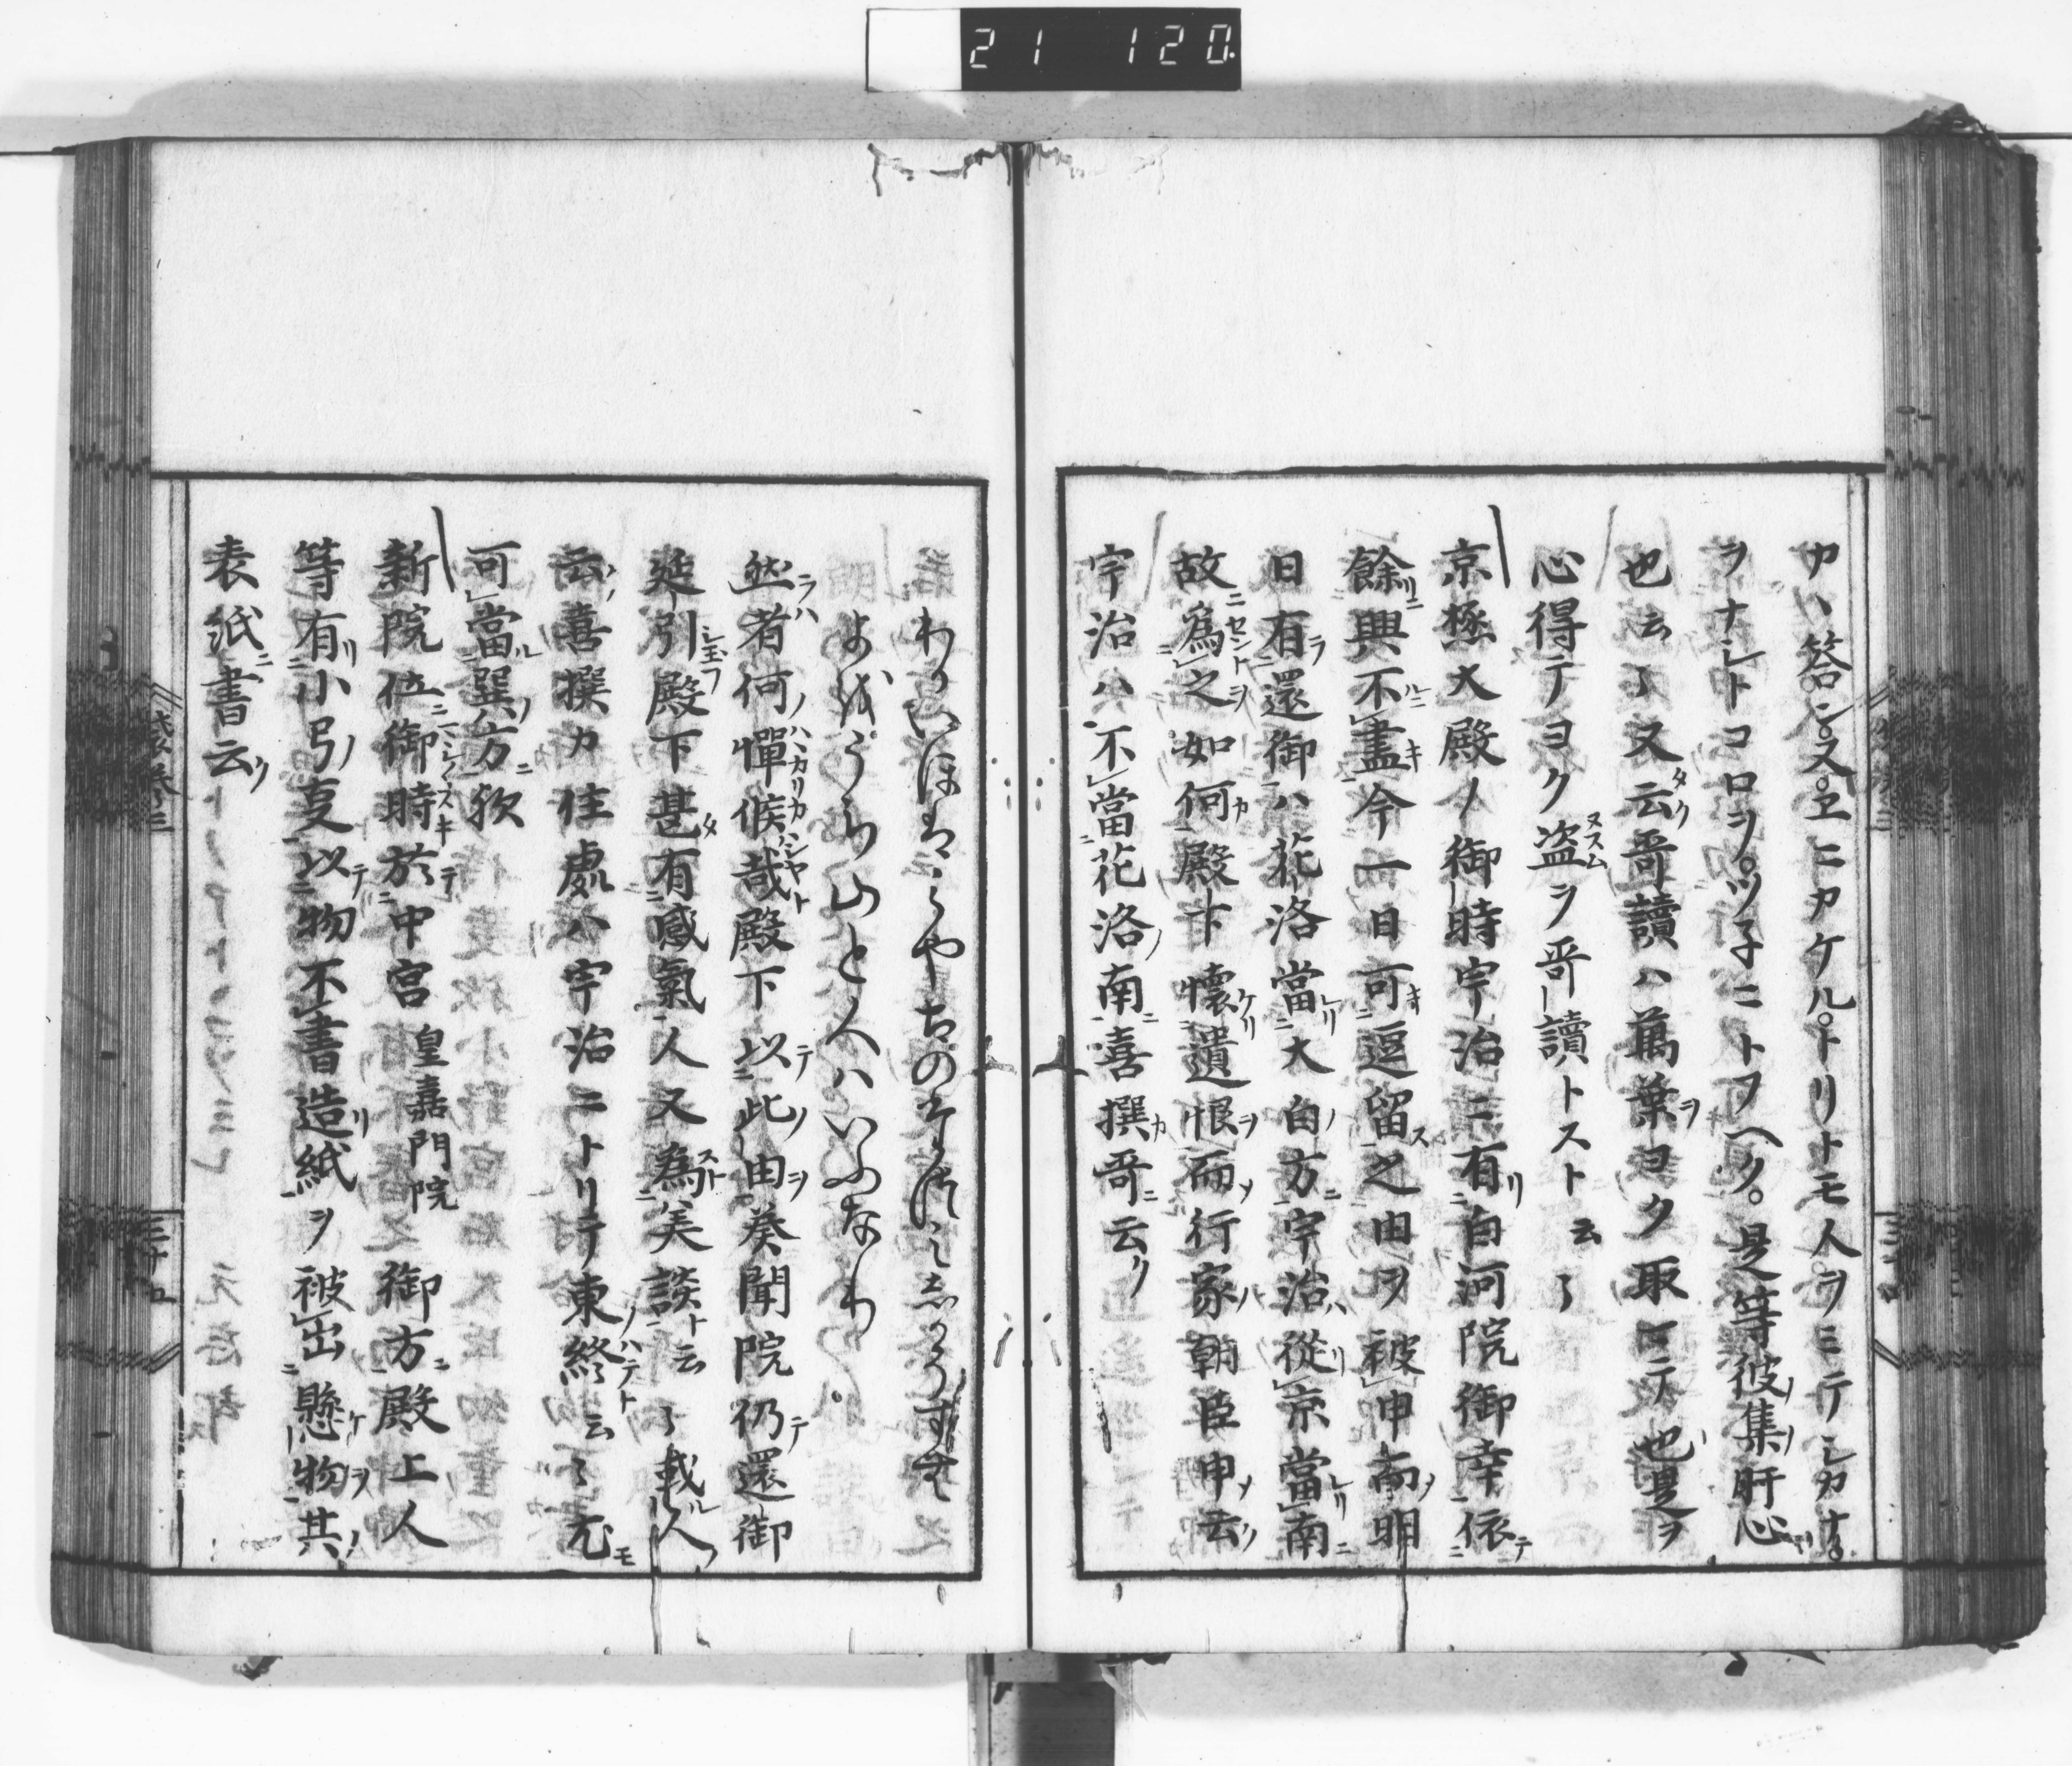 21 120
カハ答シ。又。ヱニカケル。トリトモ人ヲミテシカナ。
ヲナシトコロヲ。ツ子ニトフヘク。是等彼集肝心
也云々又云哥讀ハ萬葉ヨク取マテ也是ヲ
心得テヨク盗ヲ哥讀トスト云々
京極大殿ノ御時宇治ニ有白河院御幸依
餘興不盡今一日可逗留之由ヲ被申而明
日有還御ハ花洛當大白方宇治從京當南
故為之如何殿下懐遺恨而行家朝臣申云
宇治ハ不當花洛南喜撰哥云
わかいほはみやこのたつみしかそすむ
よをうち山と人はいふなり
然者何憚候哉殿下以此由奏聞院仍還御
延引殿下甚有感氣人又為美談云々載人
云喜撰カ住處ハ宇治ニトリテ東終云々尤
可當巽方歟
新院位御時於中宮皇嘉門院御方殿上人
等有小弓㕝以物不書造紙ヲ被出懸物其
表紙書云